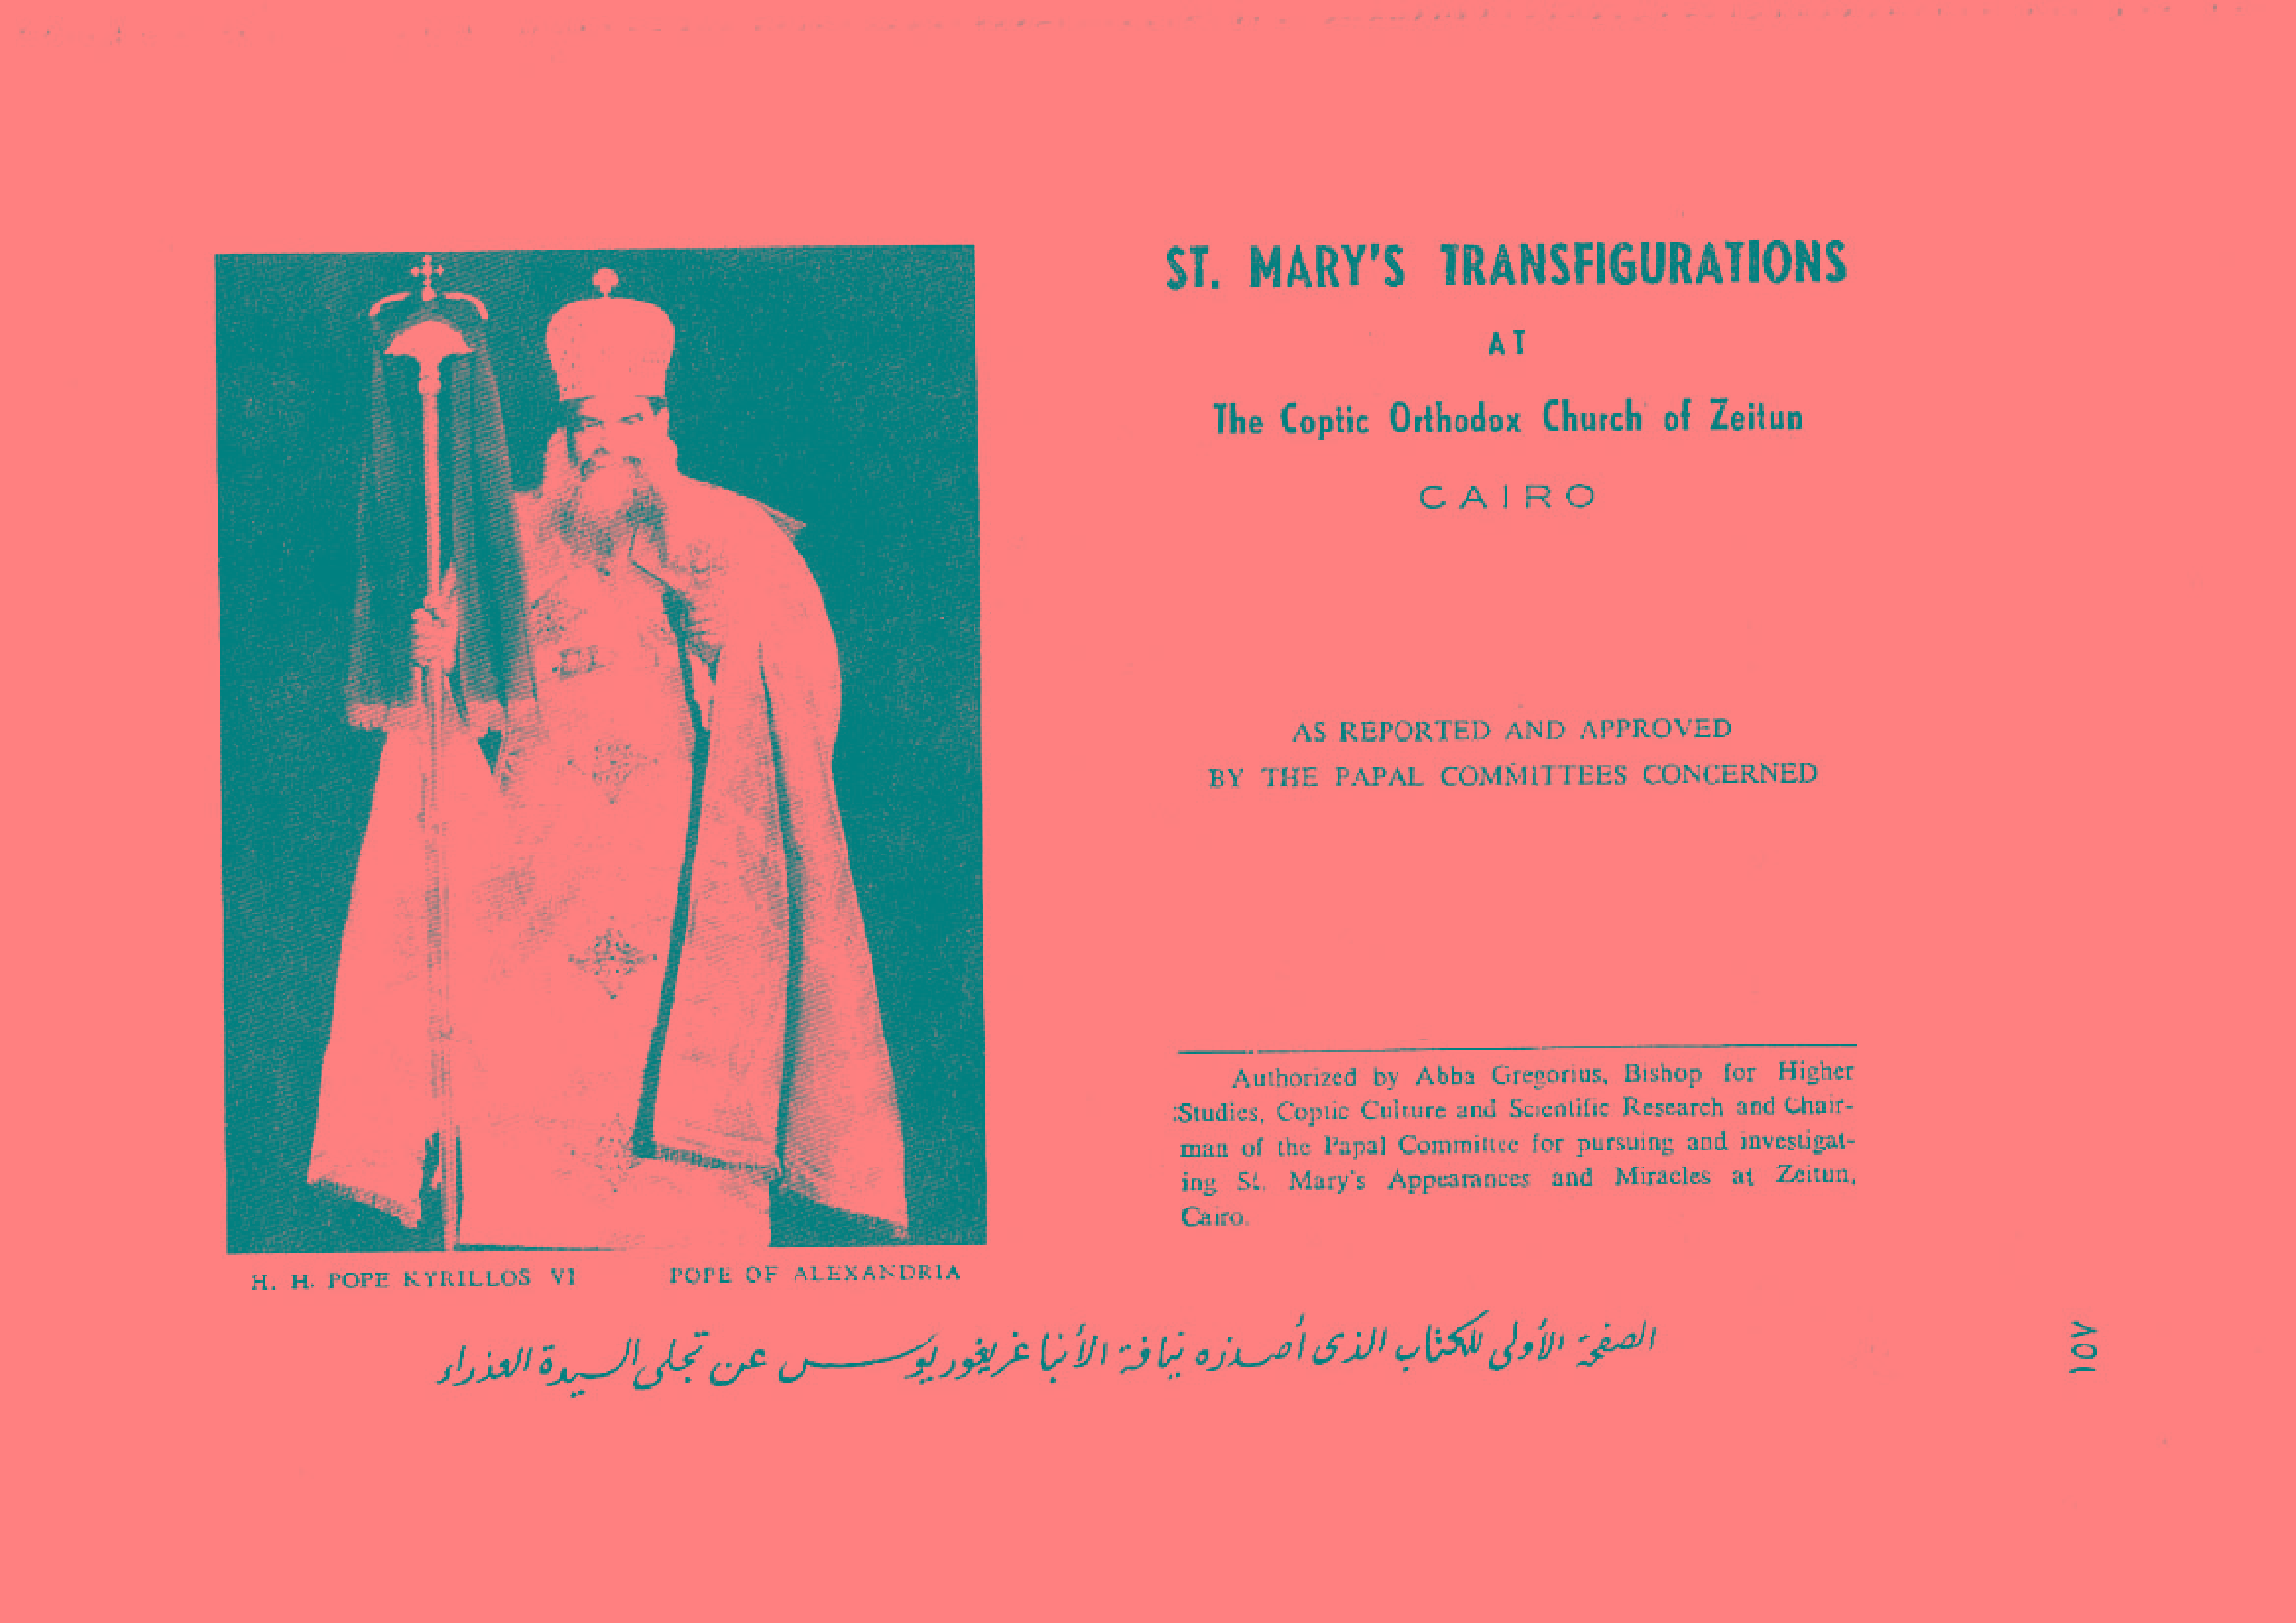 ST. MARY'S TRANSFIGURATIONS
AT
The Coptic Orthodox Church of Zeitun
CAIRO
AS REPORTED AND APPROVED
BY THE PAPAL COMMITTEES CONCERNED
Authorized by Abba Gregorius, Bishop for Higher
Studies, Coptic Culture and Scientific Research and Chair-
man of the Papal Committee for pursuing and investigat-
ing St. Mary's Appearances and Miracles at Zeitun,
Cairo.
H. H. POPE KYRILLOS VI POPE OF ALEXANDRIA
الصفحة الأولى للكتاب الذى أصدره نيافة الأنبا غريغوريوس عن تجلى السيدة العذراء
١٥٧